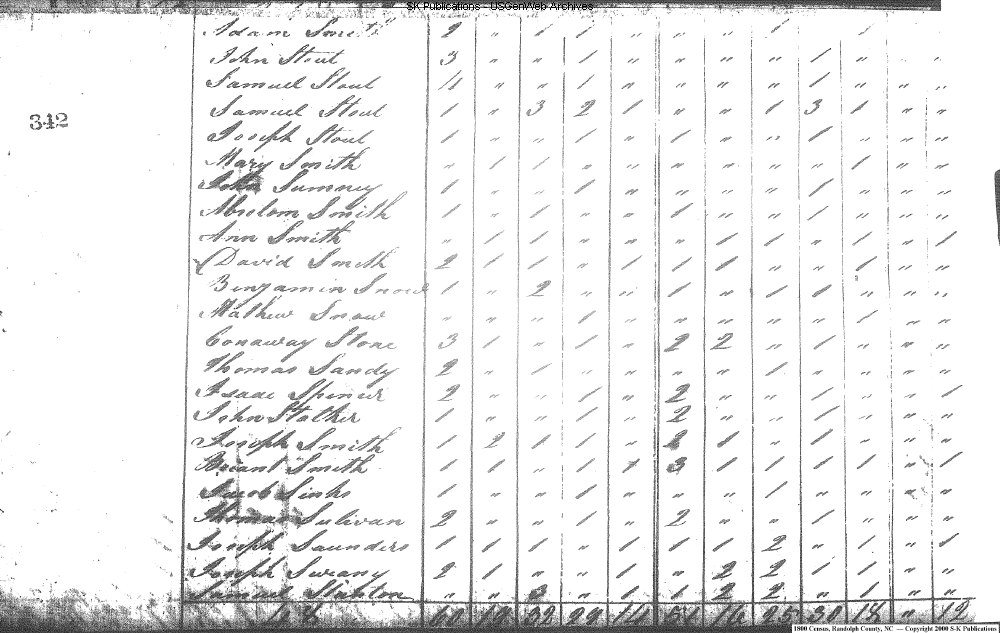 SK Publications - USGenWeb Archives
Adam Smith 2 " 1 1 " " " 1 " 1
John Stout 3 " " 1 " " " " 1 " " "
Samuel Stout 4 " " 1 " " " " 1 " " "
342
Samuel Stout 1 " 3 2 1 " " 1 3 1 " "
Joseph Stout 1 " " 1 " 1 " " 1 " " "
Mary Smith " 1 1 " " " " " " 1 " "
John Sumney 1 " " 1 " " " " 1 " " "
Absolom Smith 1 " 1 " " 1 " " 1 " " "
Ann Smith " 1 1 " " " 1 1 " 1 " 1
David Smith 2 1 1 " 1 1 1 " " 1 " "
Benjamin Snow 1 " 2 " " 1 " 1 1 " " "
Mathew Snow " " " 1 " " " " " 1 " "
Conaway Stone 3 1 " 1 " 2 2 " 1 " " "
Thomas Sandy 2 " 1 " " " " 1 " " " "
Isaac Spencer 2 " " 1 " 2 " " 1 " " 1
John Stalker 1 " " 1 " 2 " " 1 " " "
Joseph Smith 1 2 1 1 " 2 1 " 1 " " "
Briant Smith 1 1 " 1 1 3 1 1 1 1 " 1
Jacob Sinks 1 " " 1 " " " 1 " " " "
Thomas Sulivan 2 " " 1 " 2 " " 1 " " "
Joseph Saunders 1 1 1 " 1 1 1 2 " 1 " 1
Joseph Swany 2 1 " " 1 " 2 2 1 1 " "
Samuel Stanton " " 3 " 1 1 2 2 " 1 " "
60 19 32 29 14 51 16 25 30 18 " 12
1800 Census, Randolph County, NC — Copyright 2000 S-K Publications